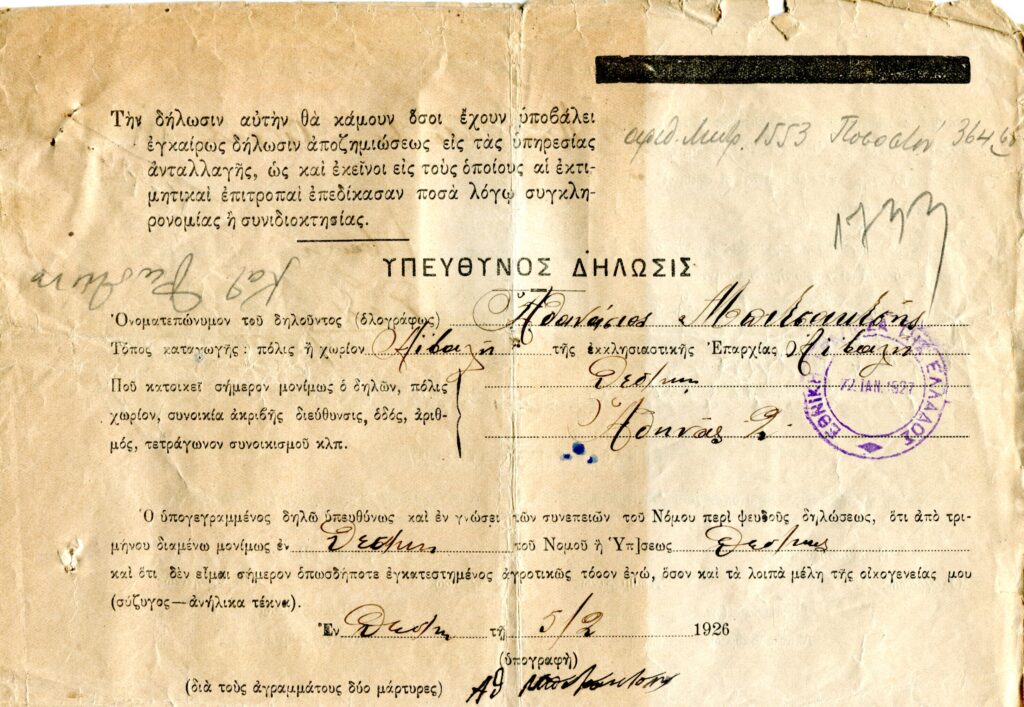 Τὴν δήλωσιν αὐτὴν θὰ κάμουν ὅσοι ἔχουν ὑποβάλει
ἐγκαίρως δήλωσιν ἀποζημιώσεως εἰς τὰς ὑπηρεσίας
ἀνταλλαγῆς, ὡς καὶ ἐκεῖνοι εἰς τοὺς ὁποίους αἱ ἐκτι-
μητικαὶ ἐπιτροπαὶ ἐπεδίκασαν ποσὰ λόγῳ συγκλη-
ρονομίας ἢ συνιδιοκτησίας.
ἀριθ. Μητρ. 1553 Ποσοστόν 364
ΥΠΕΥΘΥΝΟΣ ΔΗΛΩΣΙΣ
Ὀνοματεπώνυμον τοῦ δηλοῦντος (ὁλογράφως) Ἀθανάσιος
Τόπος καταγωγῆς: πόλις ἢ χωρίον Ἀϊβαλή τῆς ἐκκλησιαστικῆς Ἐπαρχίας Ἀϊβαλή
Ποῦ κατοικεῖ σήμερον μονίμως ὁ δηλῶν, πόλις Θεσ/νίκη
χωρίον, συνοικία ἀκριβὴς διεύθυνσις, ὁδός, ἀριθ-
μός, τετράγωνον συνοικισμοῦ κλπ. Ἀθηνᾶς 2
ΕΘΝΙΚΗ ΤΗΣ ΕΛΛΑΔΟΣ
22 ΙΑΝ. 1927
Ὁ ὑπογεγραμμένος δηλῶ ὑπευθύνως καὶ ἐν γνώσει τῶν συνεπειῶν τοῦ Νόμου περὶ ψευδοῦς δηλώσεως, ὅτι ἀπὸ τρι-
μήνου διαμένω μονίμως ἐν Θεσ/νίκη τοῦ Νομοῦ ἢ Ὑπ]σεως Θεσ/νίκης
καὶ ὅτι δὲν εἶμαι σήμερον ὁπωσδήποτε ἐγκατεστημένος ἀγροτικῶς τόσον ἐγώ, ὅσον καὶ τὰ λοιπὰ μέλη τῆς οἰκογενείας μου
(σύζυγος—ἀνήλικα τέκνα).
Ἐν Θεσ/νίκη τῇ 5/2 1926
(ὑπογραφὴ)
(διὰ τοὺς ἀγραμμάτους δύο μάρτυρες) Αθ